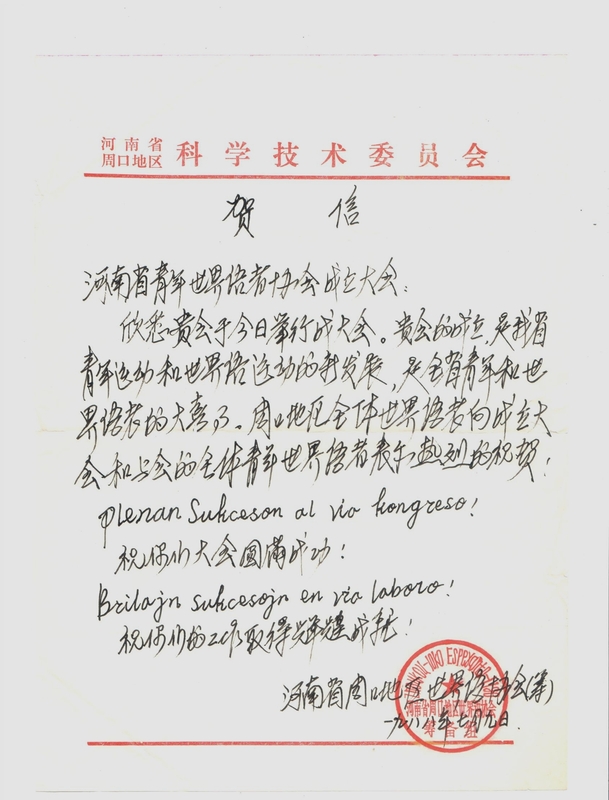 河南省
周口地区 科学技术委员会
贺 信
河南省青年世界语者协会成立大会：
欣悉贵会于今日举行成大会。贵会的成立，是我省
青年运动和世界语运动的新发展，是全省青年和世
界语者的大喜事。周口地区全体世界语者向成立大
会和与会的全体青年世界语者表示热烈的祝贺！
Plenan Sukceson al via kongreso!
祝你们大会圆满成功！
Brilajn sukcesojn en via laboro!
祝你们的工作取得辉煌成就！
河南省周口地区世界语协会(筹)
一九八八年七月九日.
河南省周口地区世界语协会
筹备组